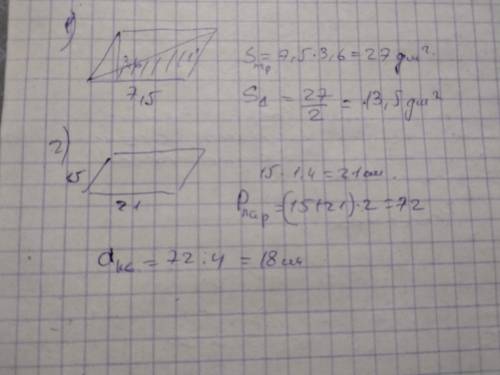 1)
3,6
7,5
S пр = 7,5 · 3,6 = 27 дм²
S△ = 27/2 = 13,5 дм²
2)
15
21
15 · 1,4 = 21 см.
Pпар = (15+21) · 2 = 72
aкв = 72 : 4 = 18 см